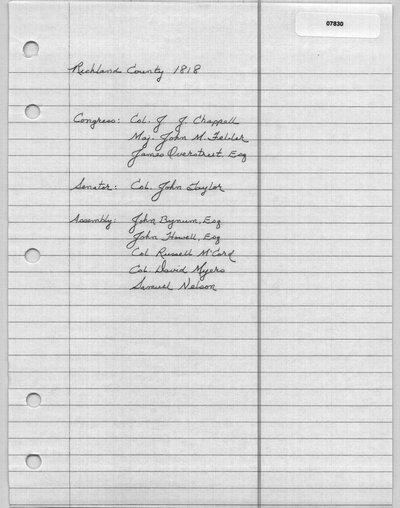 07830
Richland County 1818
Congress: Col. J. J. Chappell
Maj. John M. Felder
James Overstreet, Esq
Senator: Col. John Taylor
Assembly: John Bynum, Esq
John Howell, Esq
Col Russell McCord
Col. David Myers
Samuel Nelson